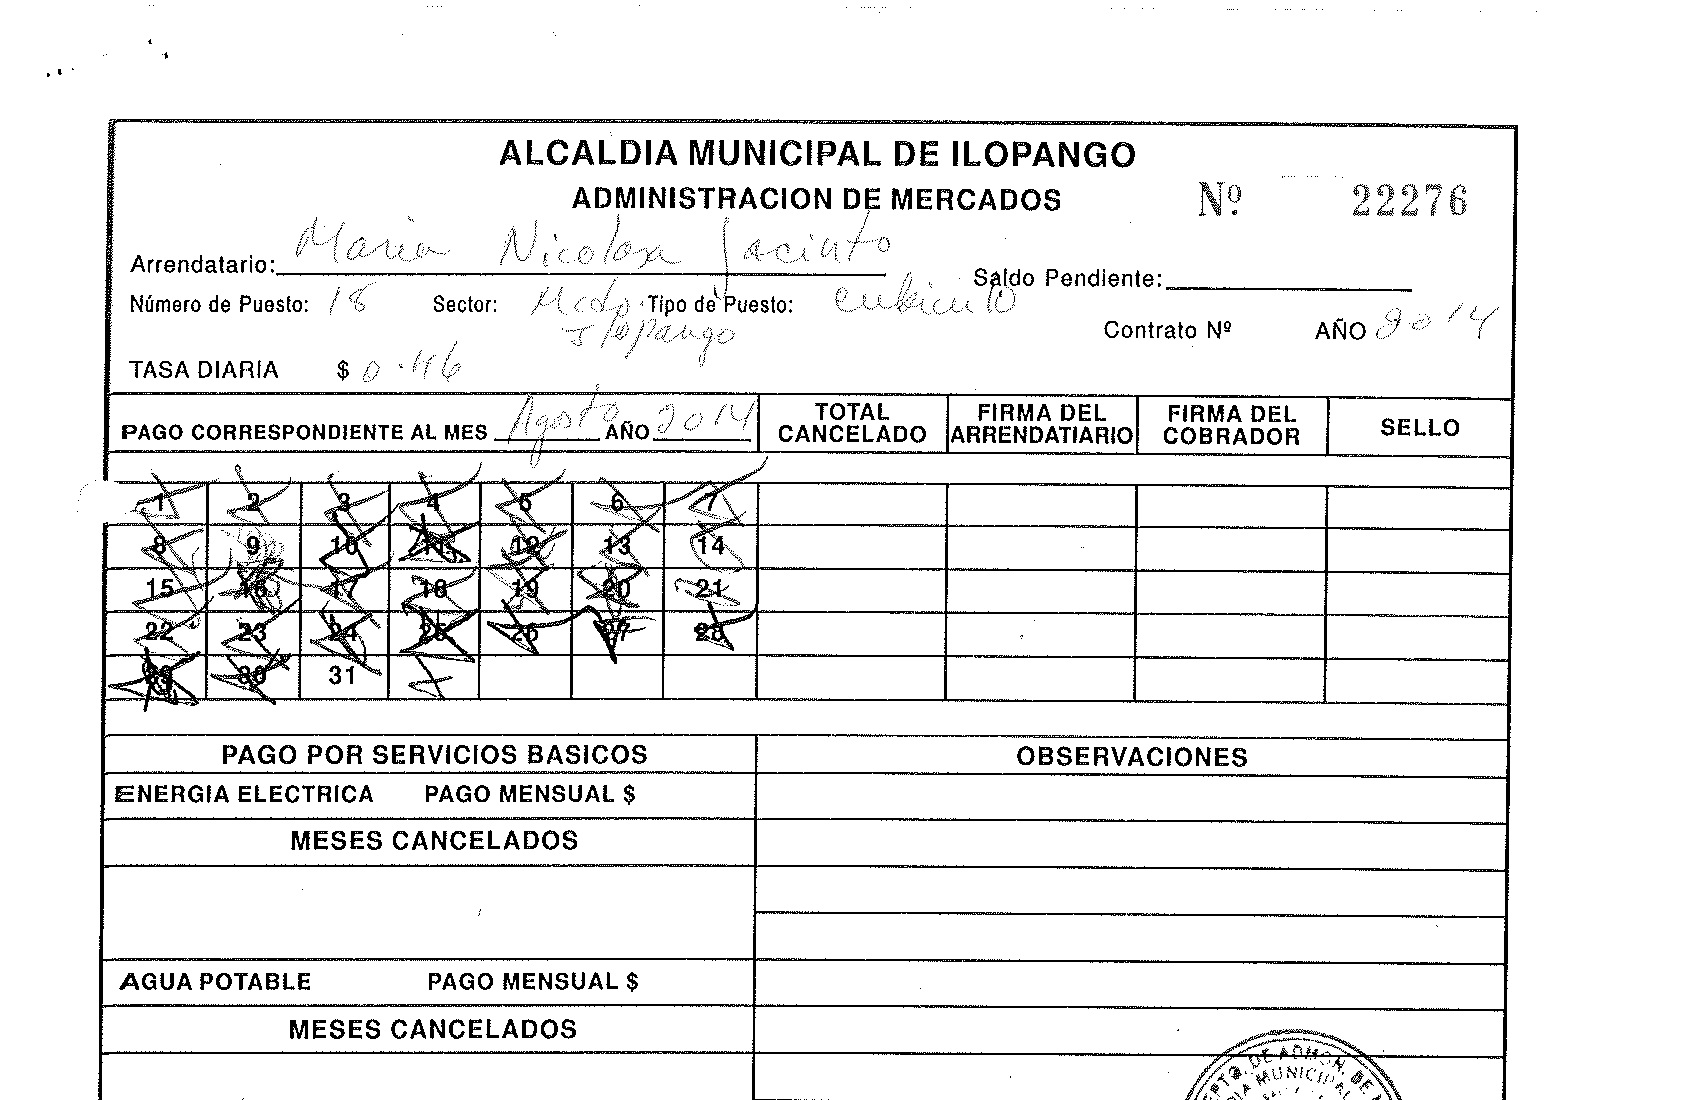 ALCALDIA MUNICIPAL DE ILOPANGO
ADMINISTRACION DE MERCADOS Nº 22276
Arrendatario: Maria Nicolasa Jacinto Saldo Pendiente:
Número de Puesto: 18 Sector: Mcdo. Ilopango Tipo de Puesto: cubiculo
Contrato Nº AÑO 2014
TASA DIARIA $ 0.46
PAGO CORRESPONDIENTE AL MES Agosto AÑO 2014 TOTAL CANCELADO FIRMA DEL ARRENDATIARIO FIRMA DEL COBRADOR SELLO
1 2 3 4 5 6 7
8 9 10 11 12 13 14
15 16 17 18 19 20 21
22 23 24 25 26 27 28
29 30 31
PAGO POR SERVICIOS BASICOS OBSERVACIONES
ENERGIA ELECTRICA PAGO MENSUAL $
MESES CANCELADOS
AGUA POTABLE PAGO MENSUAL $
MESES CANCELADOS
DE ADMON. DE
MUNICIPAL